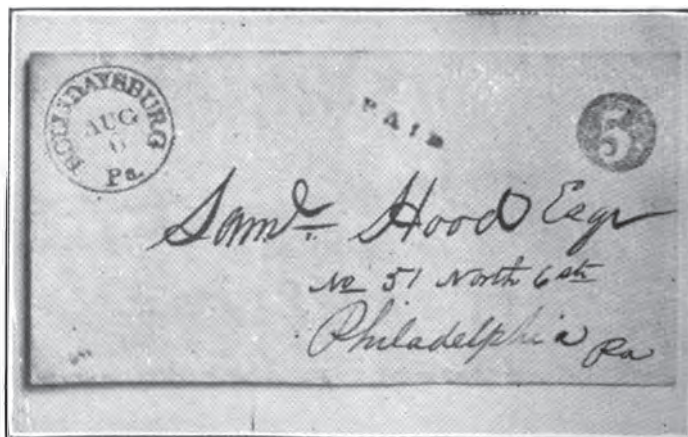 HOLLIDAYSBURG
AUG
6
Pa.
PAID
5
Saml. Hood Esqr
No 51 North 6 sth
Philadelphia Pa